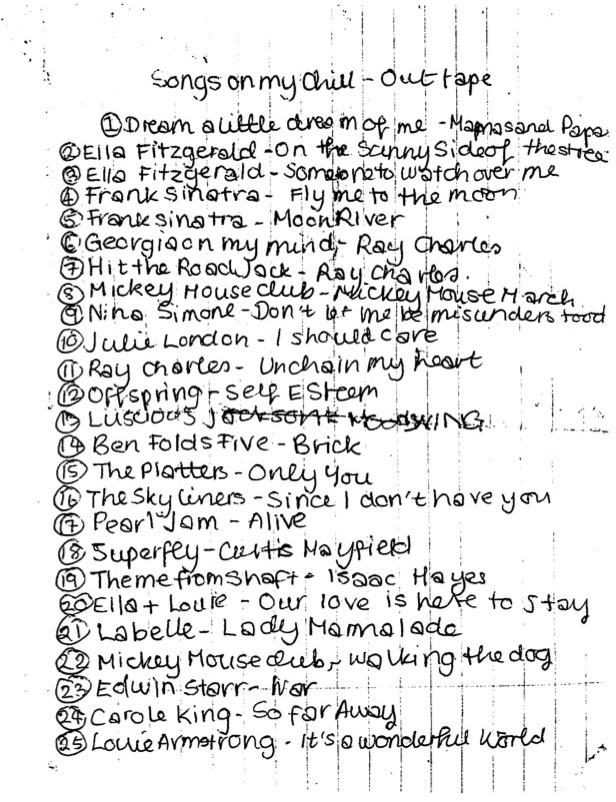 Songs on my Chill-Out tape
① Dream a little dream of me - Mamas and Papa
② Ella Fitzgerald - On the Sunny Side of the stree
③ Ella Fitzgerald - Someone to watch over me
④ Frank Sinatra - Fly me to the moon
⑤ Frank sinatra - Moon River
⑥ Georgia on my mind - Ray Charles
⑦ Hit the Road Jack - Ray Charles.
⑧ Mickey Mouse club - Mickey Mouse March
⑨ Nina Simone - Don't let me be misunderstood
⑩ Julie London - I should care
⑪ Ray Charles - Unchain my heart
⑫ Offspring - Self Esteem
⑬ Luscious Jackson
⑭ Ben Folds Five - Brick
⑮ The Platters - Only You
⑯ The Skyliners - Since I don't have you
⑰ Pearl Jam - Alive
⑱ Superfly - Curtis Mayfield
⑲ Theme from Shaft - Isaac Hayes
⑳ Ella + Louie - Our love is here to stay
㉑ Labelle - Lady Marmalade
㉒ Mickey Mouse club - walking the dog
㉓ Edwin Starr - War
㉔ Carole King - So far Away
㉕ Louie Armstrong - it's a wonderful World